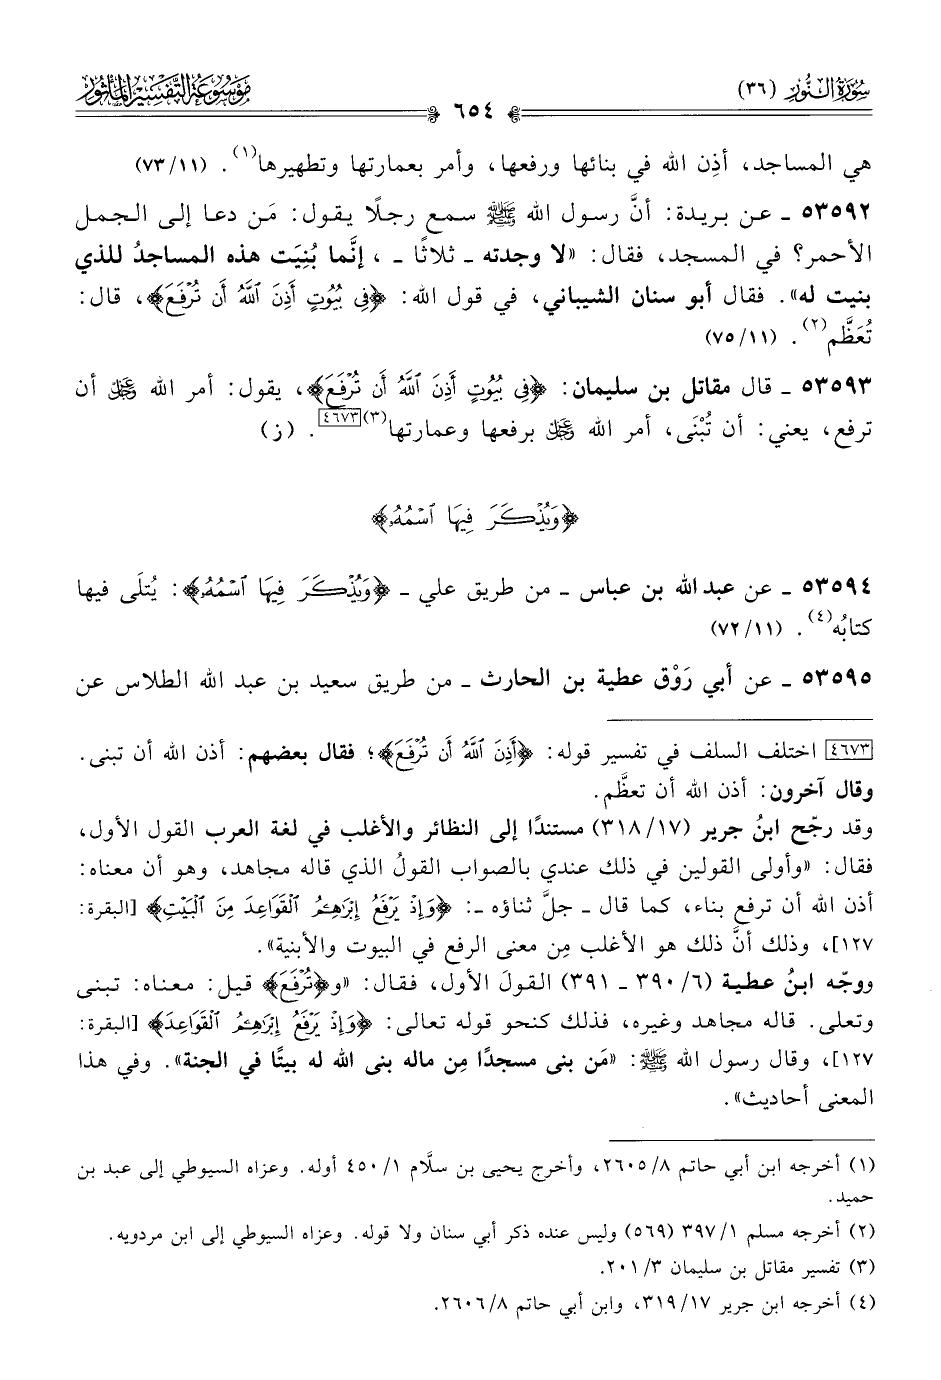 سُورَةُ النُّورِ (٣٦)
٦٥٤
مَوْسُوعَةُ التَّفْسِيرِ المَأْثُورِ
هي المساجد، أذِن الله في بنائها ورفعها، وأمر بعمارتها وتطهيرها(١). (٧٣/١١)
٥٣٥٩٢ ـ عن بريدة: أنَّ رسول الله ﷺ سمع رجلًا يقول: مَن دعا إلى الجمل
الأحمر؟ في المسجد، فقال: «لا وجدته ـ ثلاثًا ـ ، إنَّما بُنِيَت هذه المساجدُ للذي
بنيت له». فقال أبو سنان الشيباني، في قول الله: ﴿فِى بُيُوتٍ أَذِنَ ٱللَّهُ أَن تُرْفَعَ﴾، قال:
تُعَظَّم(٢). (٧٥/١١)
٥٣٥٩٣ ـ قال مقاتل بن سليمان: ﴿فِى بُيُوتٍ أَذِنَ ٱللَّهُ أَن تُرْفَعَ﴾، يقول: أمر الله ﷻ أن
ترفع، يعني: أن تُبْنَى، أمر الله ﷻ برفعها وعمارتها(٣)[٤٦٧٣]. (ز)
﴿وَيُذْكَرَ فِيهَا ٱسْمُهُۥ﴾
٥٣٥٩٤ ـ عن عبد الله بن عباس ـ من طريق علي ـ ﴿وَيُذْكَرَ فِيهَا ٱسْمُهُۥ﴾: يُتلَى فيها
كتابُه(٤). (٧٢/١١)
٥٣٥٩٥ ـ عن أبي رَوْق عطية بن الحارث ـ من طريق سعيد بن عبد الله الطلاس عن
[٤٦٧٣] اختلف السلف في تفسير قوله: ﴿أَذِنَ ٱللَّهُ أَن تُرْفَعَ﴾؛ فقال بعضهم: أذن الله أن تبنى.
وقال آخرون: أذن الله أن تعظَّم.
وقد رجّح ابنُ جرير (٣١٨/١٧) مستندًا إلى النظائر والأغلب في لغة العرب القول الأول،
فقال: «وأولى القولين في ذلك عندي بالصواب القولُ الذي قاله مجاهد، وهو أن معناه:
أذن الله أن ترفع بناء، كما قال ـ جلَّ ثناؤه ـ: ﴿وَإِذْ يَرْفَعُ إِبْرَٰهِـۧمُ ٱلْقَوَاعِدَ مِنَ ٱلْبَيْتِ﴾ [البقرة:
١٢٧]، وذلك أنَّ ذلك هو الأغلب مِن معنى الرفع في البيوت والأبنية».
ووجّه ابنُ عطية (٣٩٠/٦ ـ ٣٩١) القولَ الأول، فقال: «و﴿تُرْفَعَ﴾ قيل: معناه: تبنى
وتعلى. قاله مجاهد وغيره، فذلك كنحو قوله تعالى: ﴿وَإِذْ يَرْفَعُ إِبْرَٰهِـۧمُ ٱلْقَوَاعِدَ﴾ [البقرة:
١٢٧]، وقال رسول الله ﷺ: «مَن بنى مسجدًا مِن ماله بنى الله له بيتًا في الجنة». وفي هذا
المعنى أحاديث».
(١) أخرجه ابن أبي حاتم ٢٦٠٥/٨، وأخرج يحيى بن سلَّام ٤٥٠/١ أوله. وعزاه السيوطي إلى عبد بن
حميد.
(٢) أخرجه مسلم ٣٩٧/١ (٥٦٩) وليس عنده ذكر أبي سنان ولا قوله. وعزاه السيوطي إلى ابن مردويه.
(٣) تفسير مقاتل بن سليمان ٢٠١/٣.
(٤) أخرجه ابن جرير ٣١٩/١٧، وابن أبي حاتم ٢٦٠٦/٨.